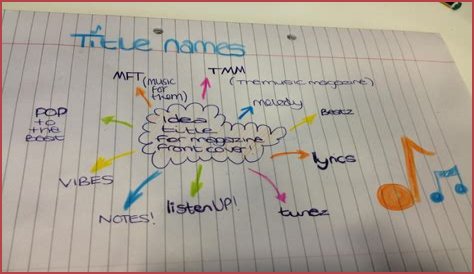 Title names
MFT (music
for
them)
TMM
(The music magazine)
melody
Beatz
lyrics
tunez
listenUP!
NOTES!
VIBES
POP
to
the
Beat
Idea
title
For magazine
front cover!